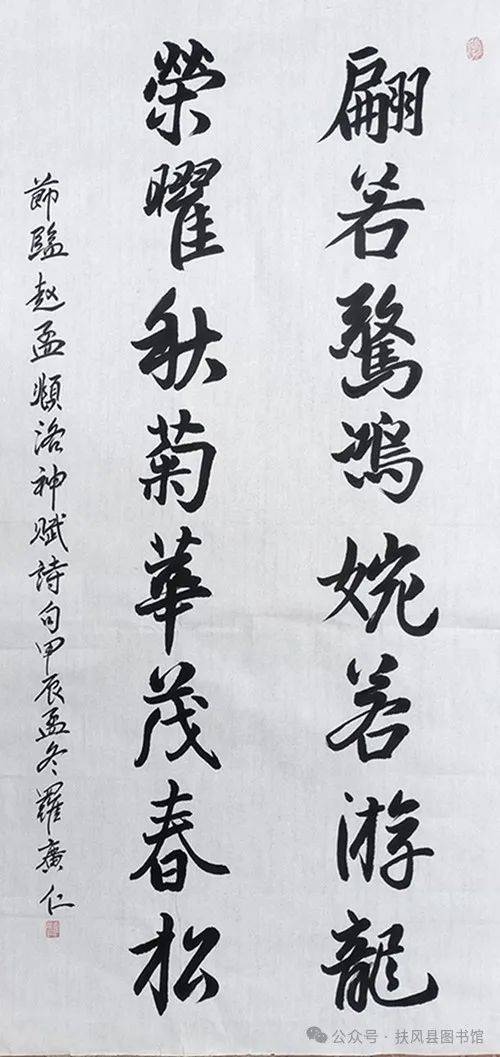 翩若驚鴻婉若游龍
榮曜秋菊華茂春松
節臨趙孟頫洛神賦詩句甲辰孟冬羅廣仁
公众号·扶风县图书馆